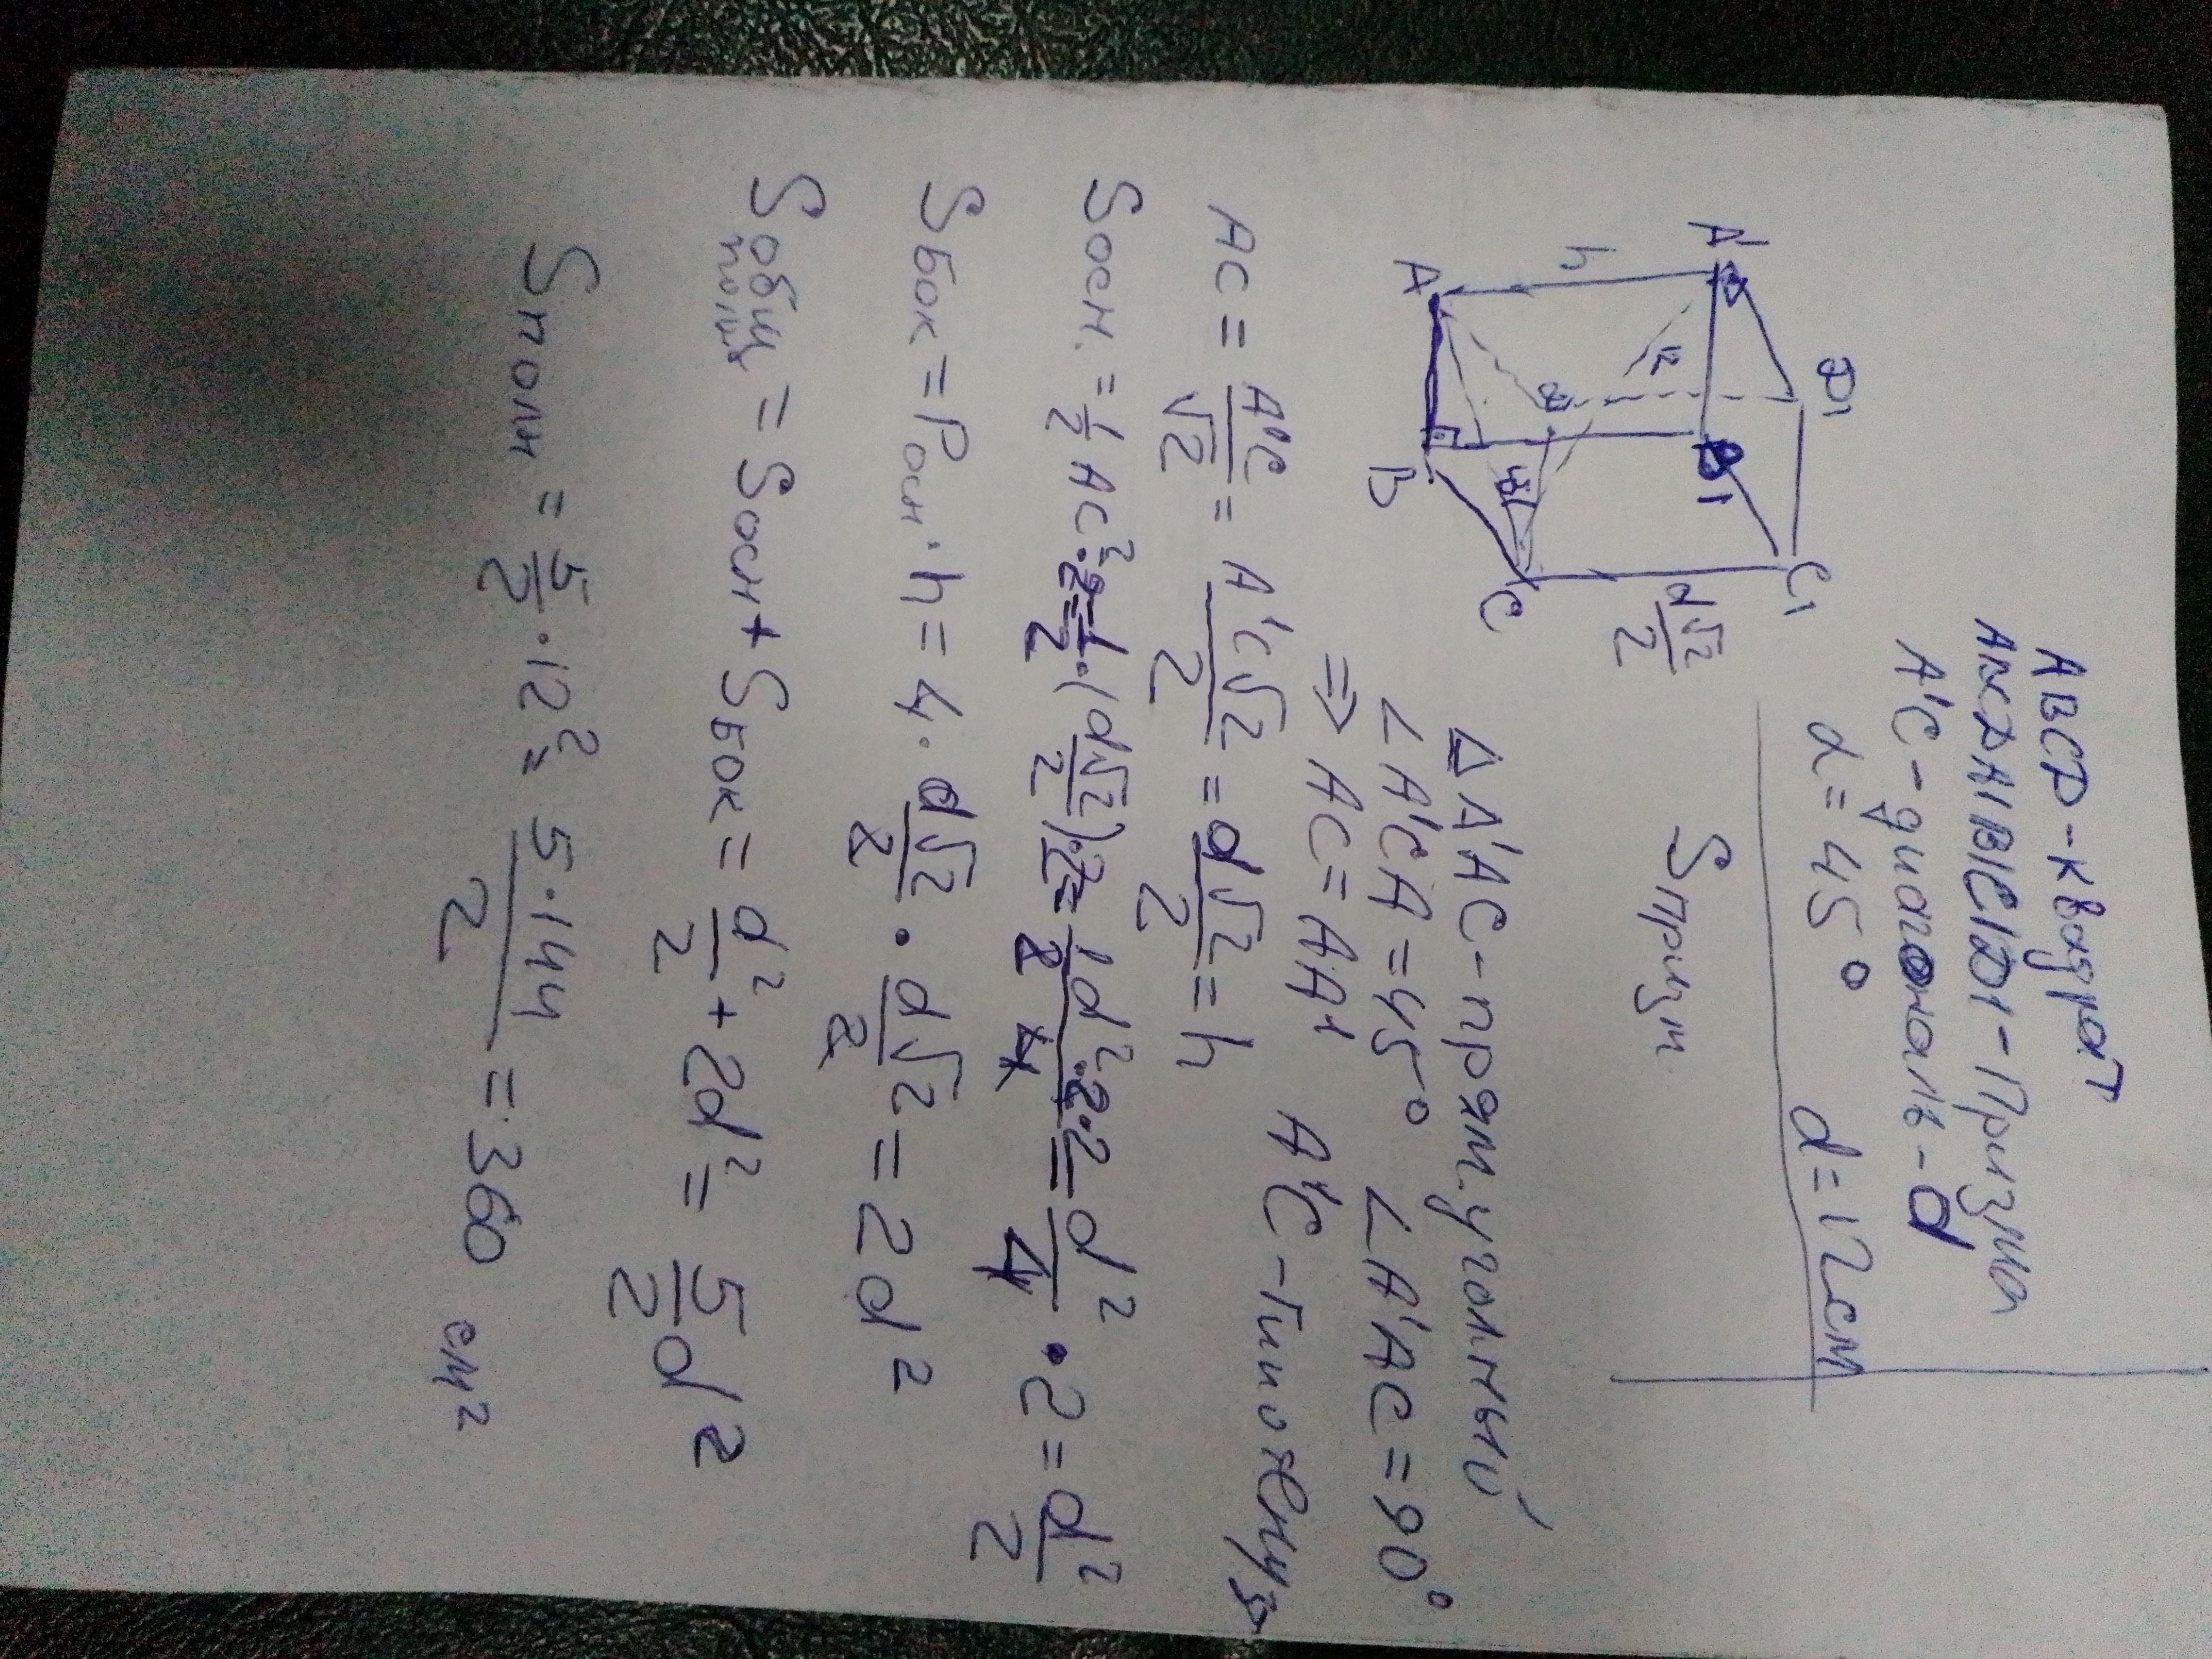 ABCD - квадрат
ABCDA1B1C1D1 - Призма
A'C - диагональ - d
α = 45° d = 12 см
S призм.
A' D1 C1 B1
h 12 d√2/2
A B C 45°
△A'AC - прям. угольный
∠A'CA = 45° ∠A'AC = 90°
⇒ AC = AA' A'C - гипотенуза
AC = A'C/√2 = A'C√2/2 = d√2/2 = h
Sосн. = 1/2 AC²·2 = 1/2·(d√2/2)·2 = 1/2 d²·2·2/4 = d²/4 · 2 = d²/2
Sбок = Pосн · h = 4 · d√2/2 · d√2/2 = 2d²
Sобщ полн = Sосн + Sбок = d²/2 + 2d² = 5/2 d²
Sполн = 5/2 · 12² = 5·144/2 = 360 см²